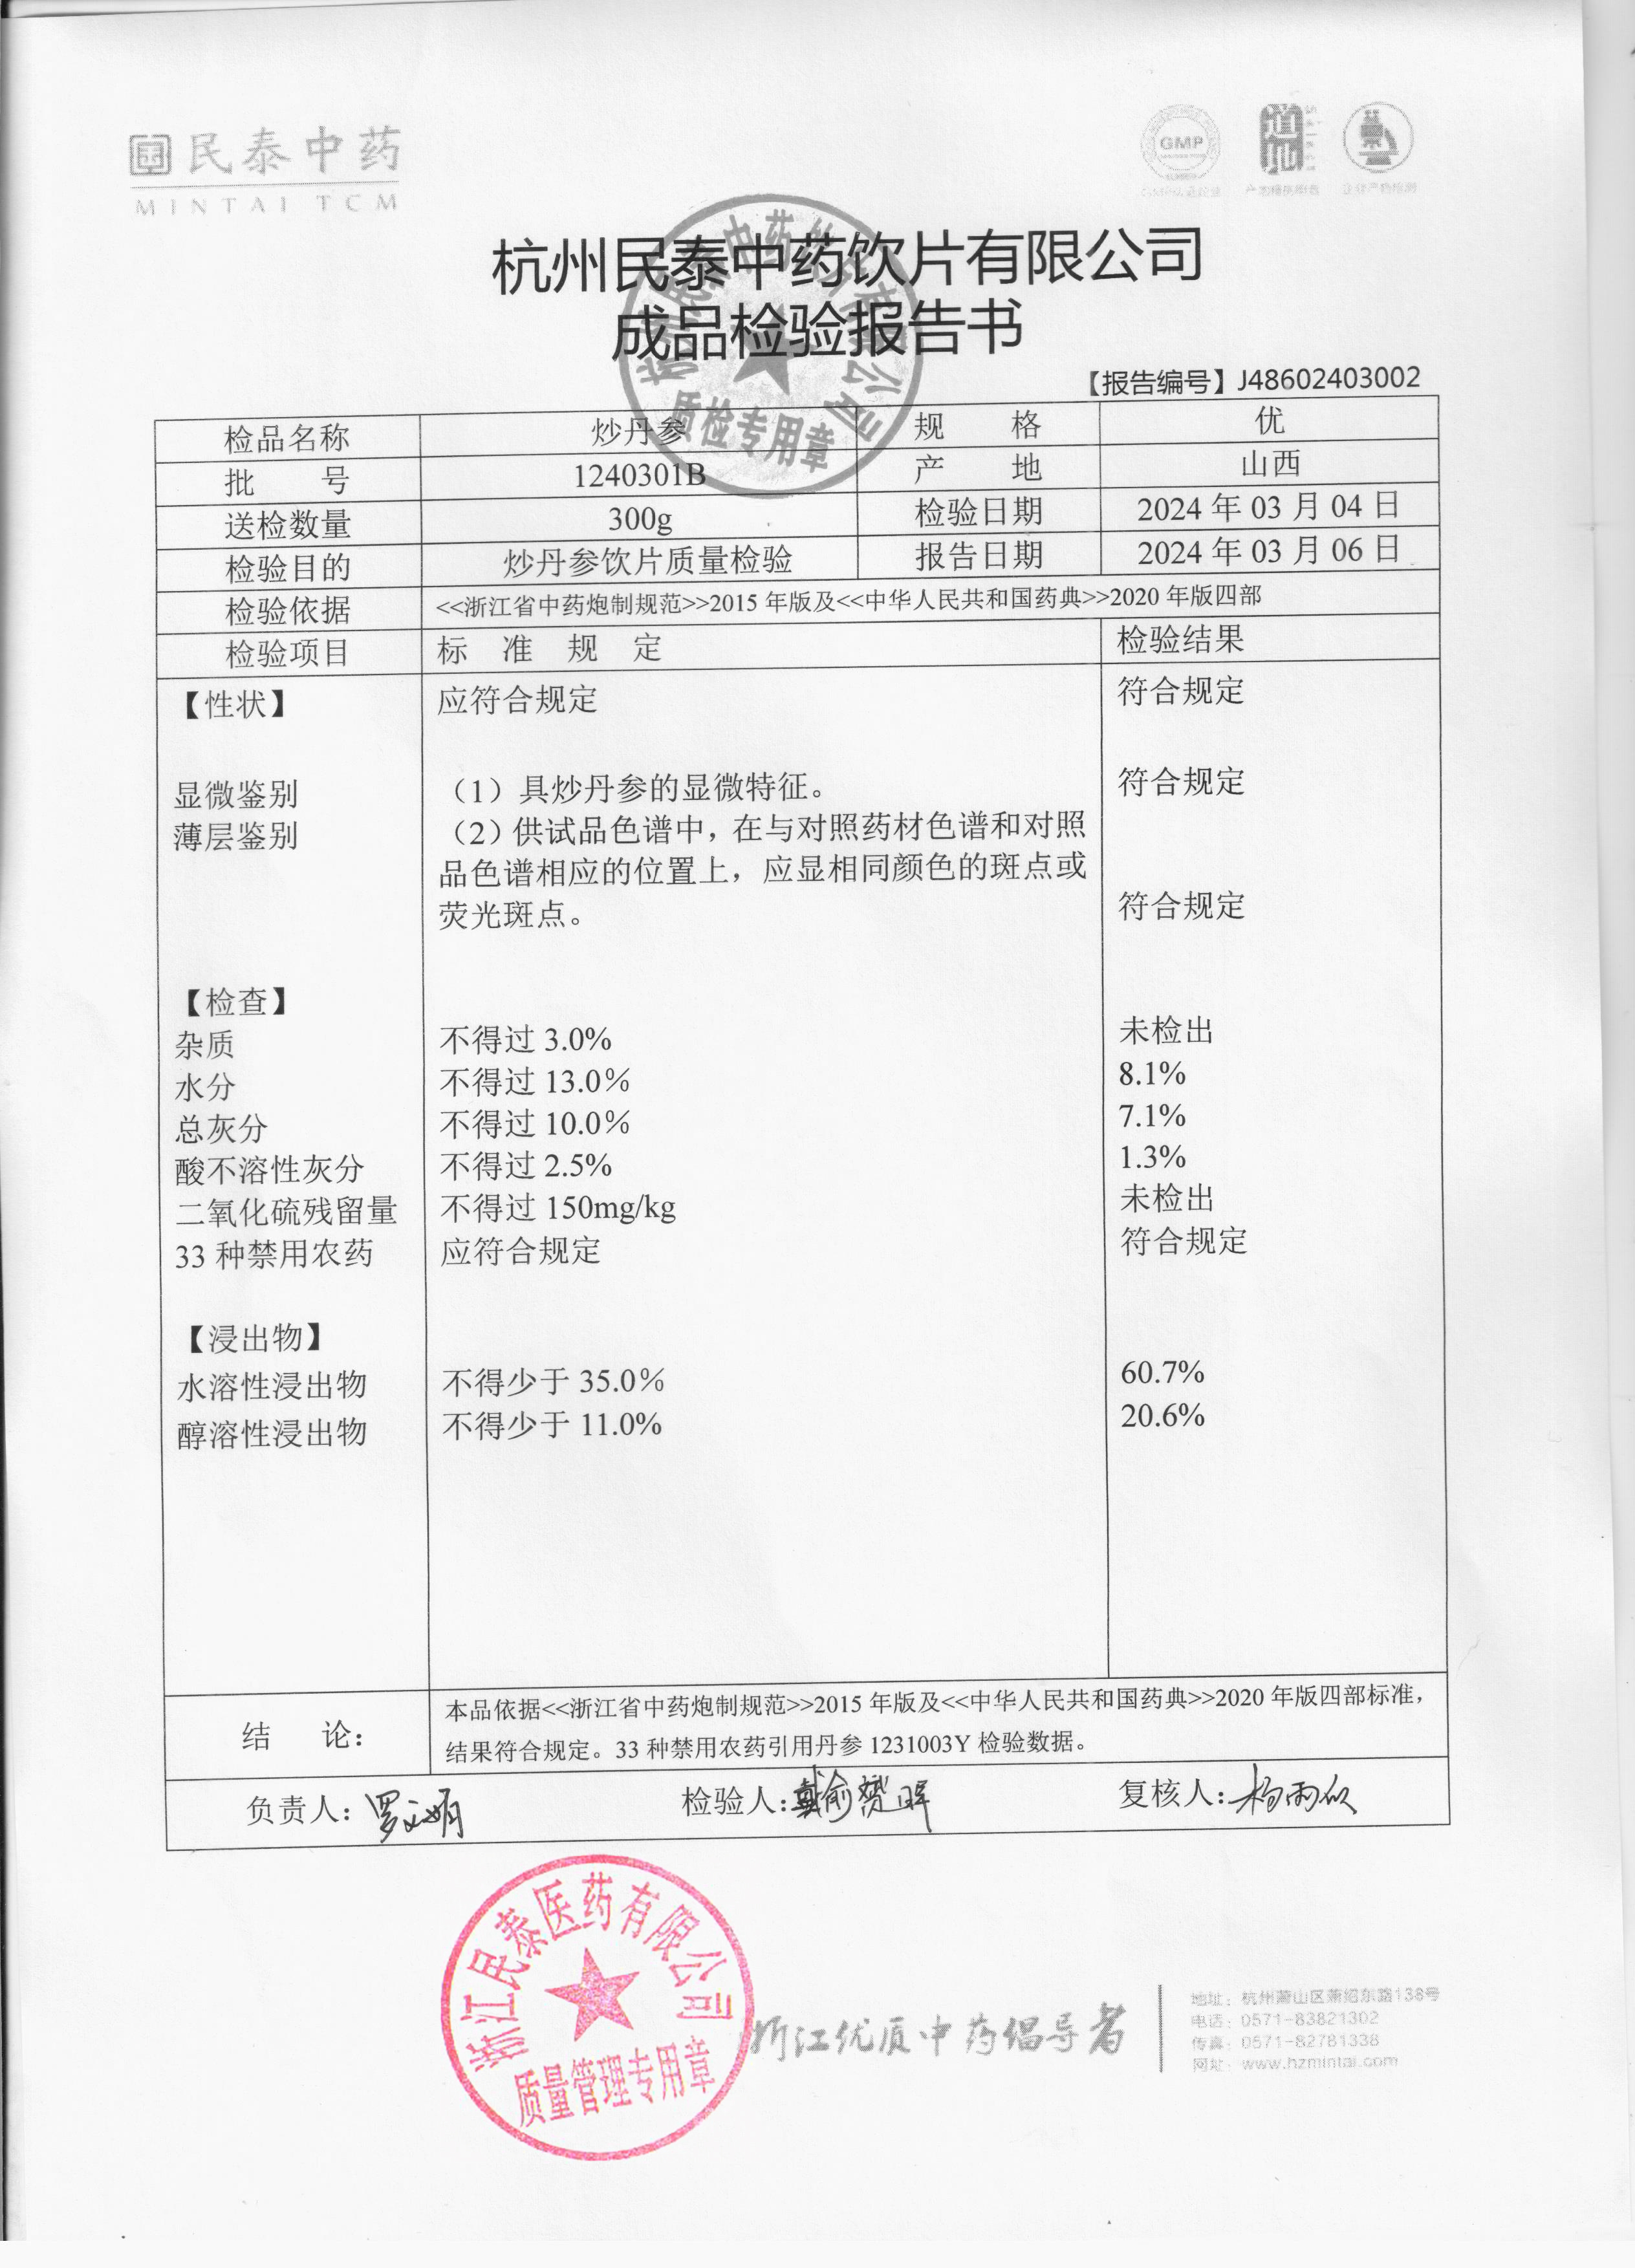 民泰中药
MINTAI TCM
GMP
道地
杭州民泰中药饮片有限公司
成品检验报告书
【报告编号】J48602403002
检品名称 炒丹参 规 格 优
批 号 1240301B 产 地 山西
送检数量 300g 检验日期 2024 年 03 月 04 日
检验目的 炒丹参饮片质量检验 报告日期 2024 年 03 月 06 日
检验依据 <<浙江省中药炮制规范>>2015 年版及<<中华人民共和国药典>>2020 年版四部
检验项目 标 准 规 定 检验结果
【性状】 应符合规定 符合规定
显微鉴别 （1）具炒丹参的显微特征。 符合规定
薄层鉴别 （2）供试品色谱中，在与对照药材色谱和对照
品色谱相应的位置上，应显相同颜色的斑点或
荧光斑点。 符合规定
【检查】
杂质 不得过 3.0% 未检出
水分 不得过 13.0% 8.1%
总灰分 不得过 10.0% 7.1%
酸不溶性灰分 不得过 2.5% 1.3%
二氧化硫残留量 不得过 150mg/kg 未检出
33 种禁用农药 应符合规定 符合规定
【浸出物】
水溶性浸出物 不得少于 35.0% 60.7%
醇溶性浸出物 不得少于 11.0% 20.6%
结 论： 本品依据<<浙江省中药炮制规范>>2015 年版及<<中华人民共和国药典>>2020 年版四部标准，
结果符合规定。33 种禁用农药引用丹参 1231003Y 检验数据。
负责人： 检验人： 复核人：
杭州民泰中药饮片有限公司
质检专用章
浙江民泰医药有限公司
质量管理专用章
浙江优质中药倡导者
地址：杭州萧山区萧绍东路138号
电话：0571-83821302
传真：0571-82781338
网址：www.hzmintai.com